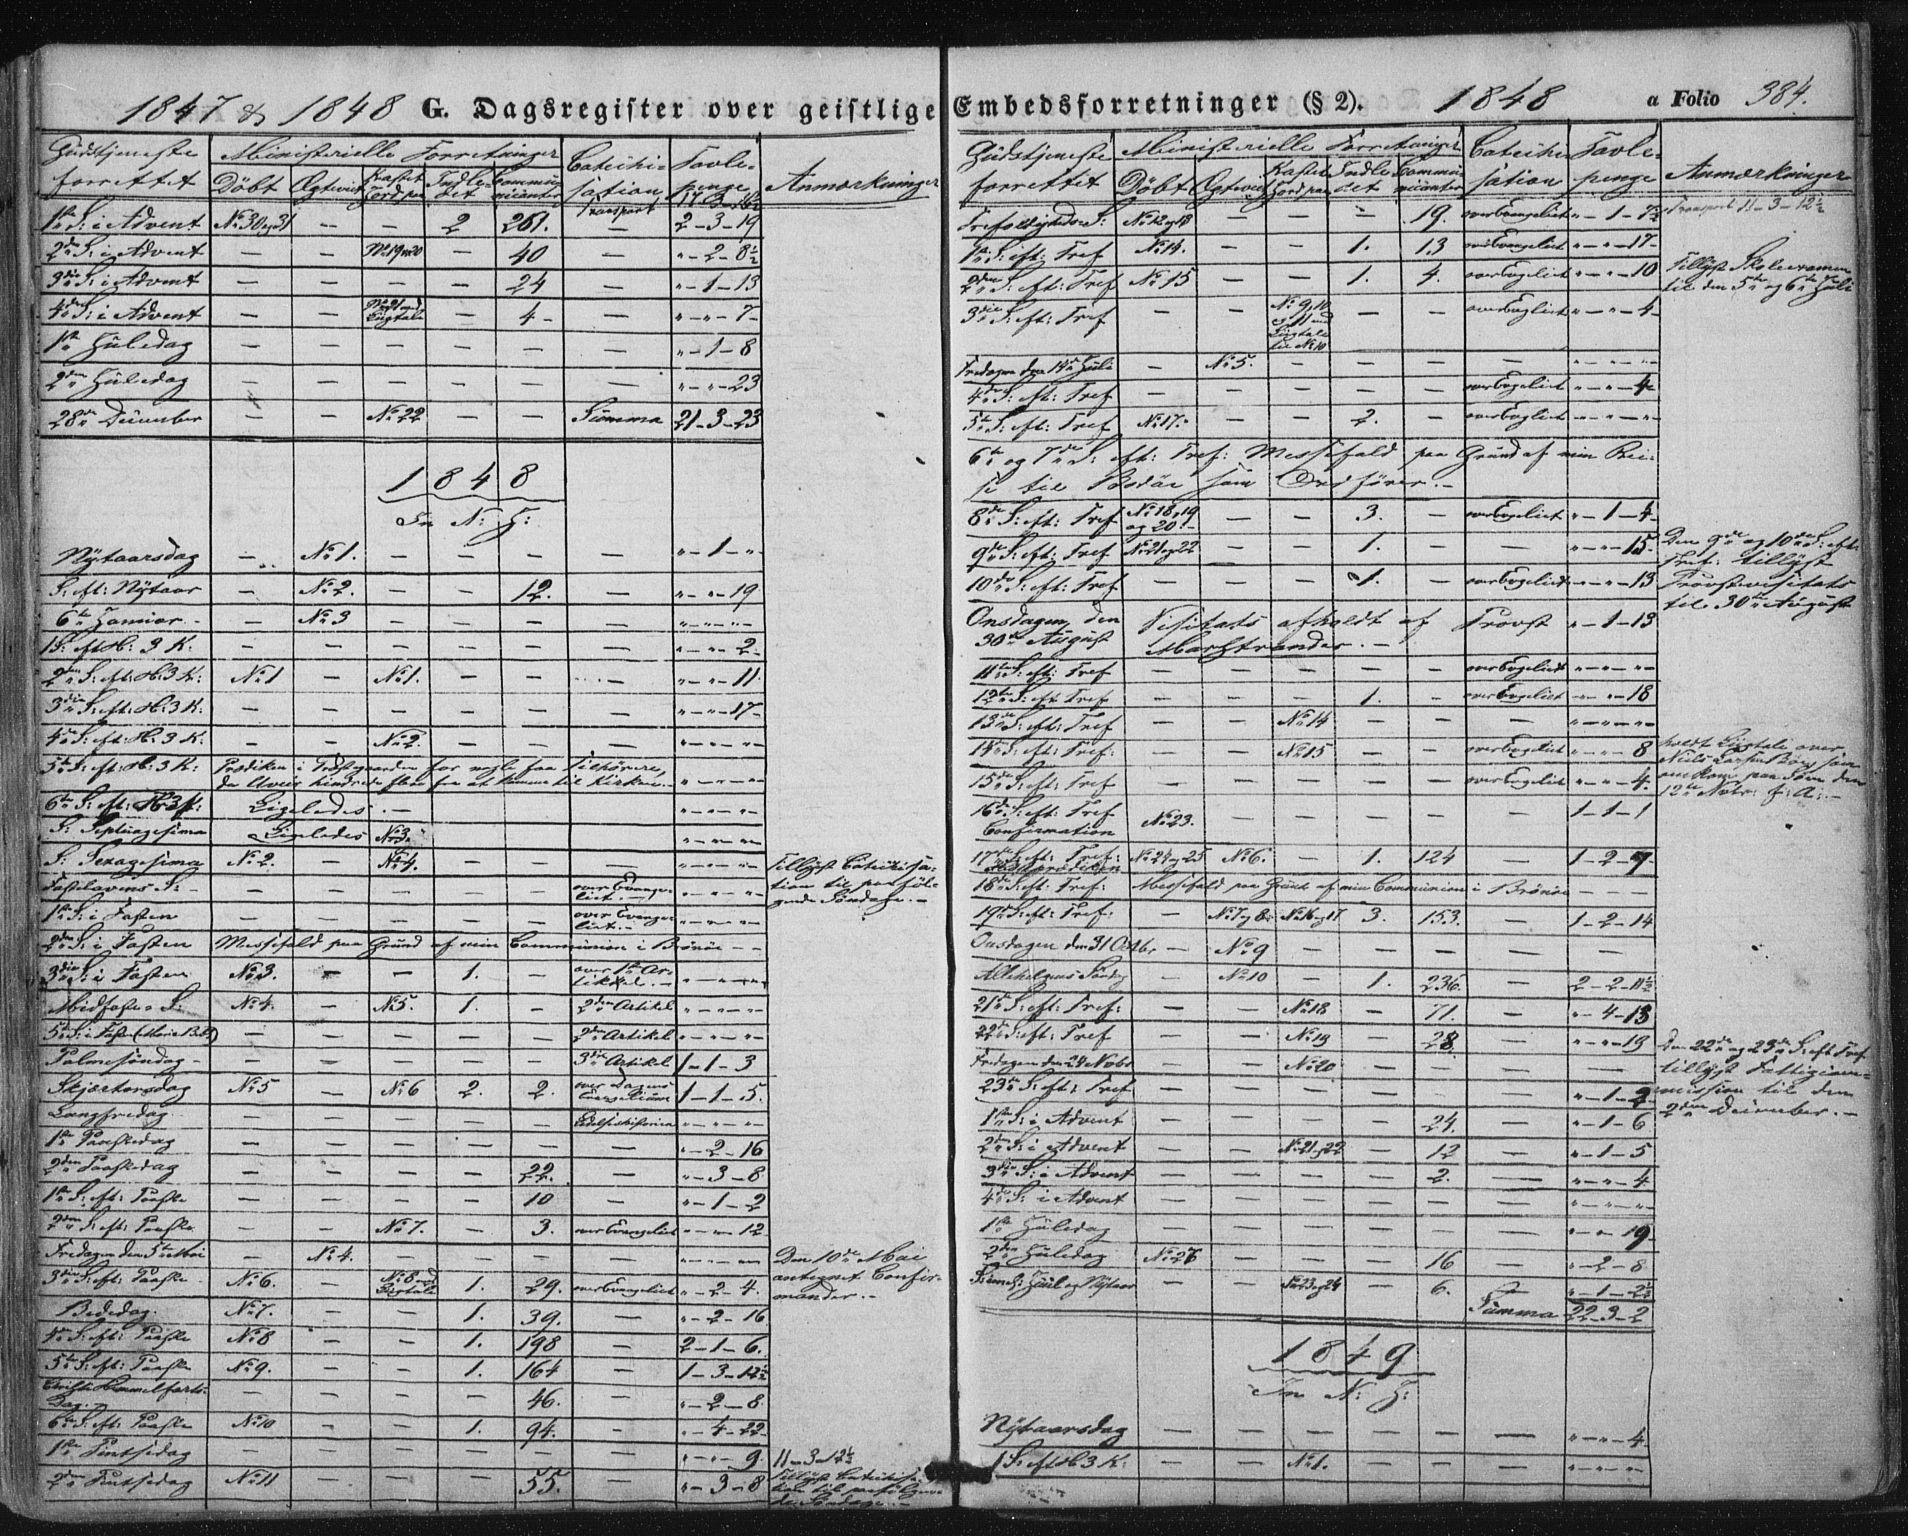 1847 & 1848 G. Dagsregister over geistlige
Gudstjeneste Ministerielle Forretninger Catechi- Tavle-
forrettet Døbt Ægteviet Kastet Jord paa Indle- det Commu- nicanter sation penge Anmærkninger
Transport
1ste S: i Advent No 30 og 31 — — 2 261. — 2-3-19
2den S: i Advent — — No 19 og 20 — 40 — "-2-8½
3die S: i Advent — — — — 24 — "-1-13
4de S: i Advent — — No 21 med Liigtale — 4 — "-"-7
1ste Juledag — — — — — — "-1-8
2den Juledag — — — — — — "-"-23
28de December — — No 22 — — Summa 21-3-23
1848
In N: J:
Nytaarsdag — No 1. — — — — "-1-"
S. eft: Nytaar — No 2. — — 12. — "-"-19
6te Januar — No 3 — — — — "-"-"
1 S: eft H: 3 K. — — — — — — "-"-2
2den S: eft: H: 3 K: No 1 — No 1. — — — "-"-11.
3die S: eft: H: 3 K: — — — — — — "-"-17
4de S: eft: H: 3 K: — — No 2. — — — "-"-"
5te S: eft: H: 3 K: Prædiken i Præstegaarden for nogle faa Tilhørere,
da Uveir hindrede flere fra at komme til Kirken. "-"-"
6te S: eft: H: 3 K: Ligeledes. — "-"-"
S: Septuagesima Ligeledes No 3. "-"-"
S: Sexagesima No 2. — No 4. — — — "-"-" Tillyst Catechisa-
Fastelavens S: — — — — — over Evange- liet. "-"-" tion til paaføl-
gende Søndage. —
1ste S: i Fasten — — — — — over Evange- liet. "-"-"
2den S: i Fasten Messefald paa Grund af min Communion i Brønøe — —
3die S: i Fasten No 3. — — 1. — over 1ste Ar- tikkel. "-"-"
Midfaste S: No 4. — No 5. 1. — 2den Artikel "-"-"
5te S: i Faste (Mariæ Beb:) — — — — — 2den Artikel "-"-"
Palmesøndag — — — — — 3die Artikel 1-1-3
Skjærtorsdag No 5 — No 6 2. 2. over Dagens Evangelium 1-1-5.
Langfredag — — — — — Lidelseshistorien "-"-"
1ste Paaskedag — — — — — — "-2-16
2den Paaskedag — — — — 22. — "-3-8
1ste S: eft: Paaske — — — — 10 — "-1-2
2den S: eft: Paaske — — No 7. — 3. over Evangeliet "-"-12
Fredagen den 5te Mai — No 4. — — — — "-"-" Den 10de Mai
3die S: eft: Paaske No 6. — No 8 med Liigtale 1. 29. over Evangeliet "-2-4. antegnet Confir-
mander. —
Bededag. No 7. — — 1. 39. — "-2-16
4de S: eft: Paaske No 8 — — 1. 198 — 2-1-6.
5te S: eft: Paaske No 9. — — 1. 164 — 1-3-12½
Christi Himmelfarts-
Dag. — — — — 46. — "-2-8
6te S: eft: Paaske No 10 — — 1. 94. — "-4-22
1ste Pintsedag — — — — — — "-"-9. 11-3-12½
2den Pintsedag No 11 — — — 55. — "-3-8 Tillyst Catechisa-
tion til paafølgen-
de Søndage. —
Embedsforretninger (§ 2). 1848 a Folio 384.
Gudstjeneste Ministerielle Forretninger Catechi- Tavle-
forrettet Døbt Ægteviet Kastet Jord paa Indle- det Commu- nicanter sation penge Anmærkninger
Trefoldigheds S: No 12 og 13 — — — 19. over Evangeliet "-1-7½ Transport 11-3-12½
1ste S: eft: Tref No 14. — — 1. 13 over Evangeliet "-"-17
2den S: eft: Tref No 15 — — 1. 4. over Evangeliet "-"-10 Tillyst Skoleexamen
til den 5te og 6te Juli
3die S: eft: Tref — — No 9, 10 og 11 med Liigtale til No 10 — — over Evangeliet "-"-4
Fredagen den 14de Juli — No 5. — — — — "-"-"
4de S: eft: Tref — — — — — over Evangeliet "-"-4
5te S: eft: Tref No 17. — — 2. — over Evangeliet "-"-"
6te og 7de S: eft: Tref: Messefald paa Grund af min Rei-
se til Bodøe som Ordfører. —
8de S: eft: Tref No 18, 19 og 20. — — 3. — over Evangeliet "-1-4
9de S: eft: Tref No 21 og 22 — — 1. — — "-"-15. Den 9de og 10de S: eft:
Tref: tillyst
10de S: eft: Tref — — — 1. — over Evangeliet "-"-13 Provstevisitats
til 30te August
Onsdagen den Visitats afholdt af Provst "-1-13
30te August Markstrander. —
11te S: eft: Tref — — — — — over Evangeliet "-"-"
12te S: eft: Tref — — — 1. — over Evangeliet "-"-18
13de S: eft: Tref — — No 14 — — — "-"-"
14de S: eft: Tref: — — No 15. — — over Evangeliet "-"-8 holdt Liigtale over
Niels Larsen Borg som
15de S: eft: Tref — — — — — over Evangeliet "-"-4. omkom paa Søen den
12te Novbr: f: A: —
16de S: eft: Tref
Confirmation No 23. — — — — — 1-1-1
17de S: eft: Tref: No 24 og 25 No 6. — 1. 124 — 1-2-7
18de S: eft: Tref: Messefald paa Grund af min Communion i Brønøe — — —
19de S: eft: Tref: — No 7 og 8 No 16 og 17 3. 153. — 1-2-14
Onsdagen den 31 Octbr — No 9 — — — — —
Allehelgens Søndag — No 10 — 1. 236. — 2-2-11½
21de S: eft: Tref: — — No 18 — 71. — "-4-13
22de S: eft: Tref — — No 19 — 28. — "-"-13 Den 22de og 23de S: eft Tref
Fredagen den 24 Novbr — — No 20 — — — — tillyst Fattigcom-
23de S: eft: Tref — — — — — — "-1-2 mission til den
2den December. —
1ste S: i Advent — — — — 24. — "-1-6
2den S: i Advent — — No 21 og 22 — 12 — "-1-5
3die S: i Advent — — — — 2. — "-"-4
4de S: i Advent — — — — — — "-"-"
1ste Juledag — — — — — — "-"-19
2den Juledag No 26 — — — 16 — "-2-8
S: ml: Juul og Nytaar — — No 23 og 24 — 6. — "-1-2½
Summa 22-3-2
1849
In N: J:
Nytaarsdag — — — — — — "-"-4
1 S: eft H 3 K: — — No 1. — — — "-"-"